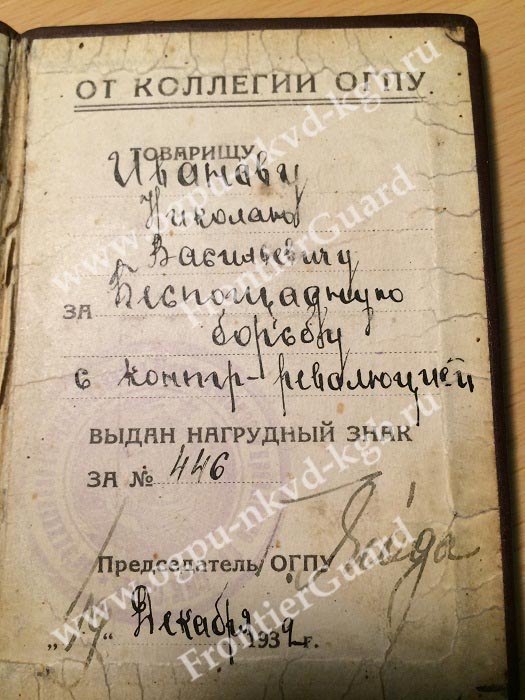 ОТ КОЛЛЕГИИ ОГПУ.
ТОВАРИЩУ
Иванову
Николаю
Васильевичу
ЗА Беспощадную
борьбу
с контр-революцией
ВЫДАН НАГРУДНЫЙ ЗНАК
ЗА № 446
Председатель ОГПУ
" " Декабря 1932 г.
www.ogpu-nkvd-kgb.ru
FrontierGuard
www.ogpu-nkvd-kgb.ru
FrontierGuard